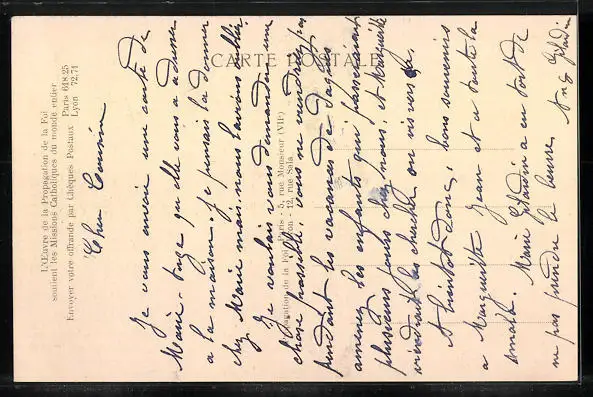 CARTE POSTALE
L'Œuvre de la Propagation de la Foi
soutient les Missions Catholiques du monde entier
Envoyer votre offrande par Chèques Postaux Paris 618.25
Lyon 72,71
Propagation de la Foi
Paris - 5, rue Monsieur (VIIe)
Lyon - 12, rue Sala
Cher Cousin
Je vous envoie une carte de
Marie- qu'elle vous a adressée
a la maison. je pensais la donner
chez Marie mais nous l'avons oubliée.
Je voulais vous demander une
chose possible, vous ne viendriez pas
pendant les vacances de Pâques
amenez les enfants qui passeraient
plusieurs jours chez nous, et Marguerite
viendrait les chercher ou vis versa.
A bientôt donc, bons souvenirs
a Marguerite Jean et a toute la
Marie en tout de
ne pas prendre la